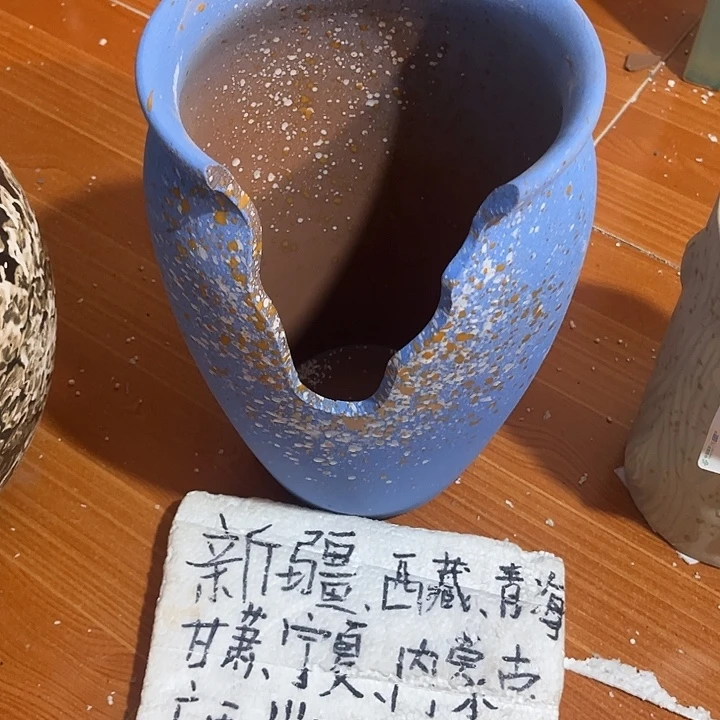 新疆、西藏、青海
甘肃、宁夏、内蒙古